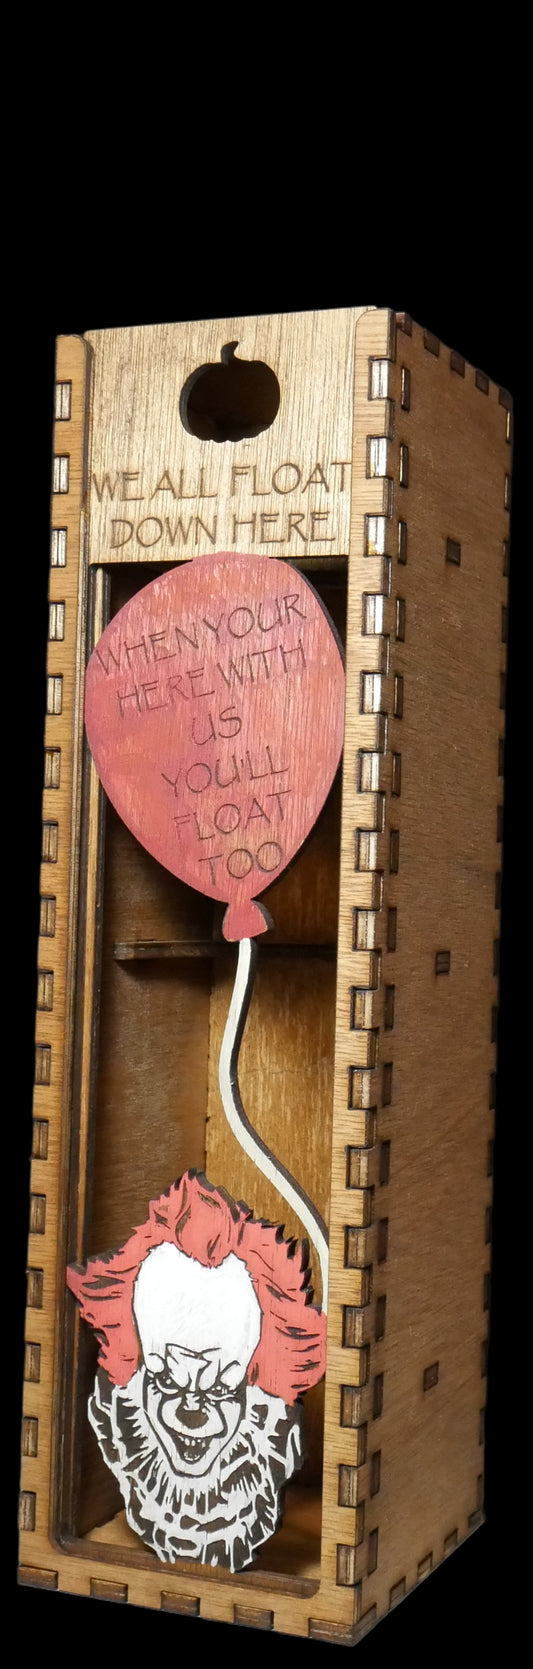 WE ALL FLOAT
DOWN HERE
WHEN YOUR
HERE WITH
US
YOU'LL
FLOAT
TOO